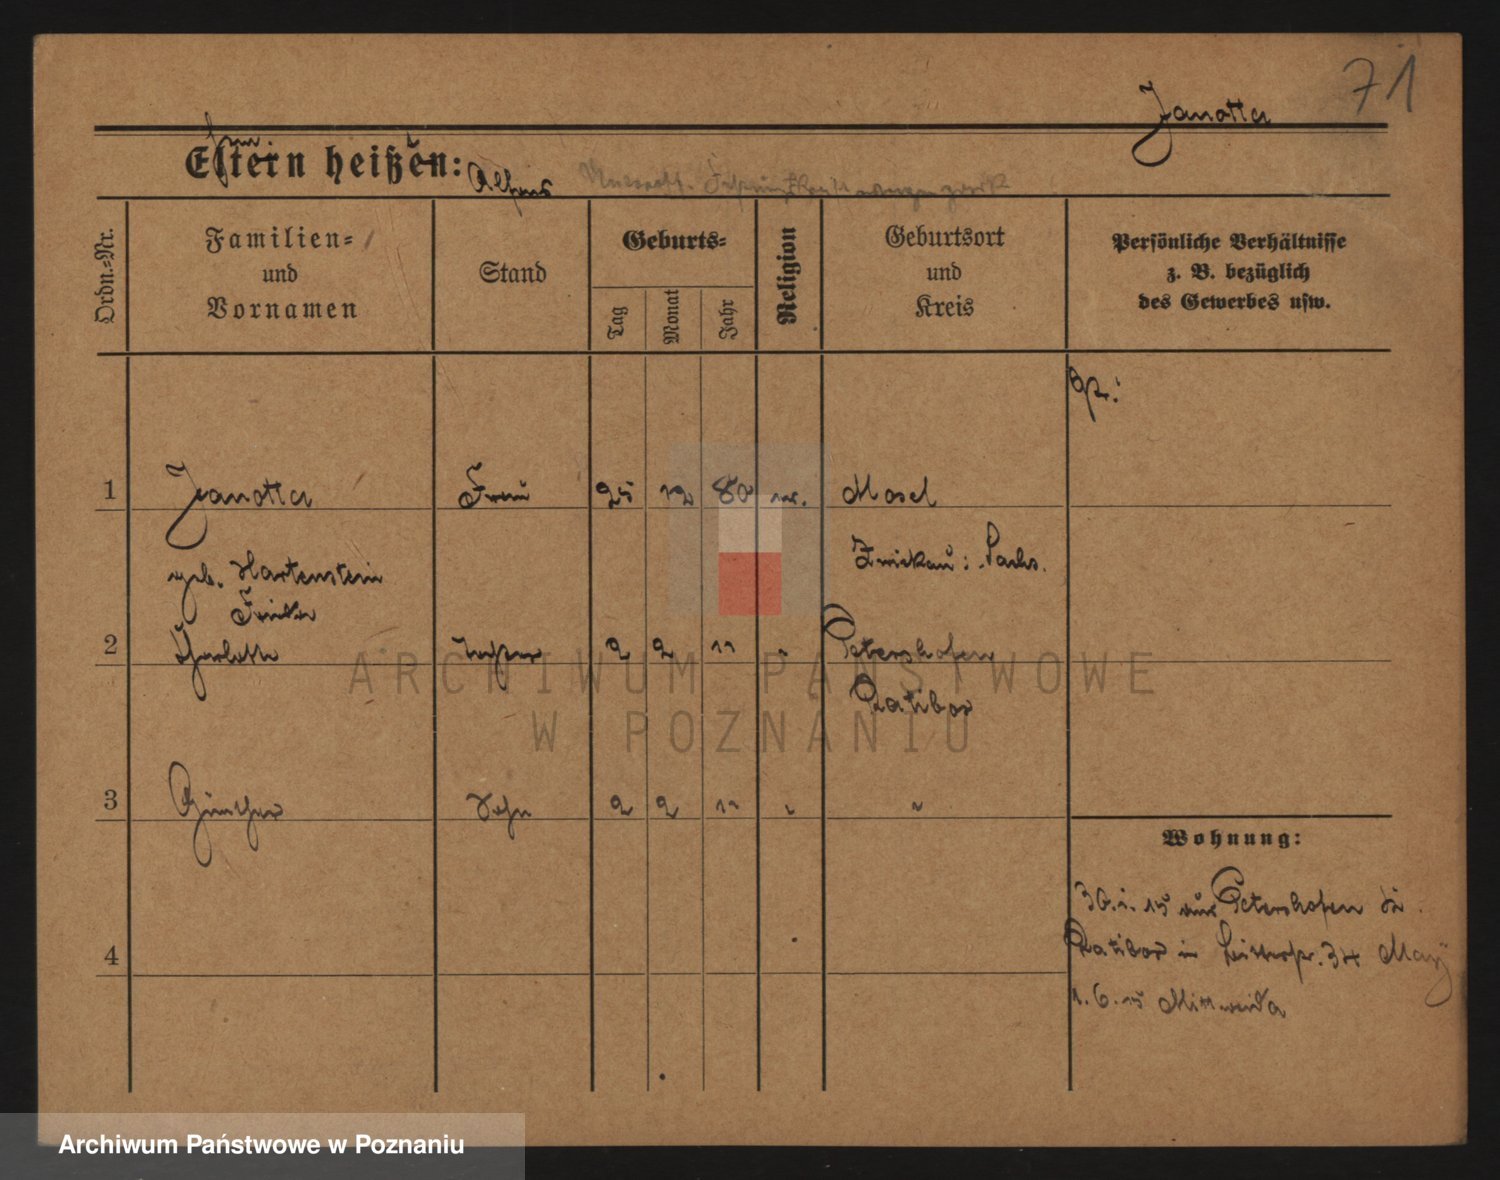 71
Janotta
Eltern heißen:
Alfons
Ordn.-Nr.
Familien-
und
Vornamen
Stand
Geburts-
Tag
Monat
Jahr
Religion
Geburtsort
und
Kreis
Persönliche Verhältnisse
z. B. bezüglich
des Gewerbes usw.
1
Janotta
Frau
25 12 80
Mosel
geb. Hartenstein
Zwickau i. Sachs.
Frieda
2
Tochter
2 2 11
Petershofen
Ratibor
3
Günther
Sohn
2 2 11 " "
Wohnung:
30.1.15 aus Petershofen
Ratibor in 34
4
1.6.15 Mittweida
ARCHIWUM PAŃSTWOWE
W POZNANIU
Archiwum Państwowe w Poznaniu